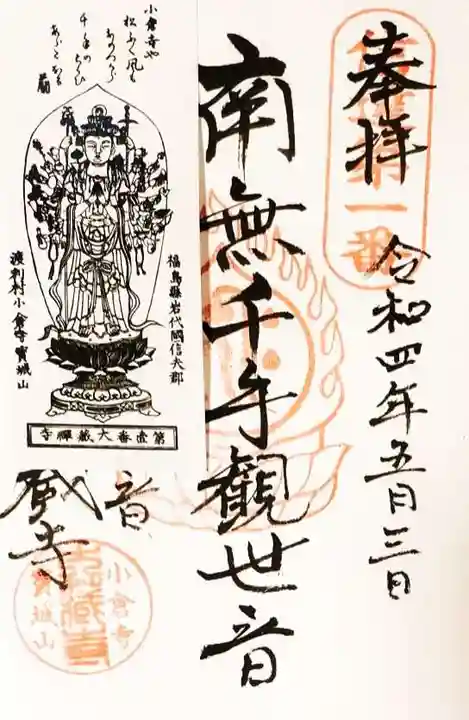 奉拝
令和四年五月三日
南無千手観世音
音
蔵寺
小倉寺や
松ふく風も
千手の
蔵
福島縣岩代國信夫郡
渡利村小倉寺寶城山
第壹番大蔵禪寺
第一番
小倉寺
寶城山